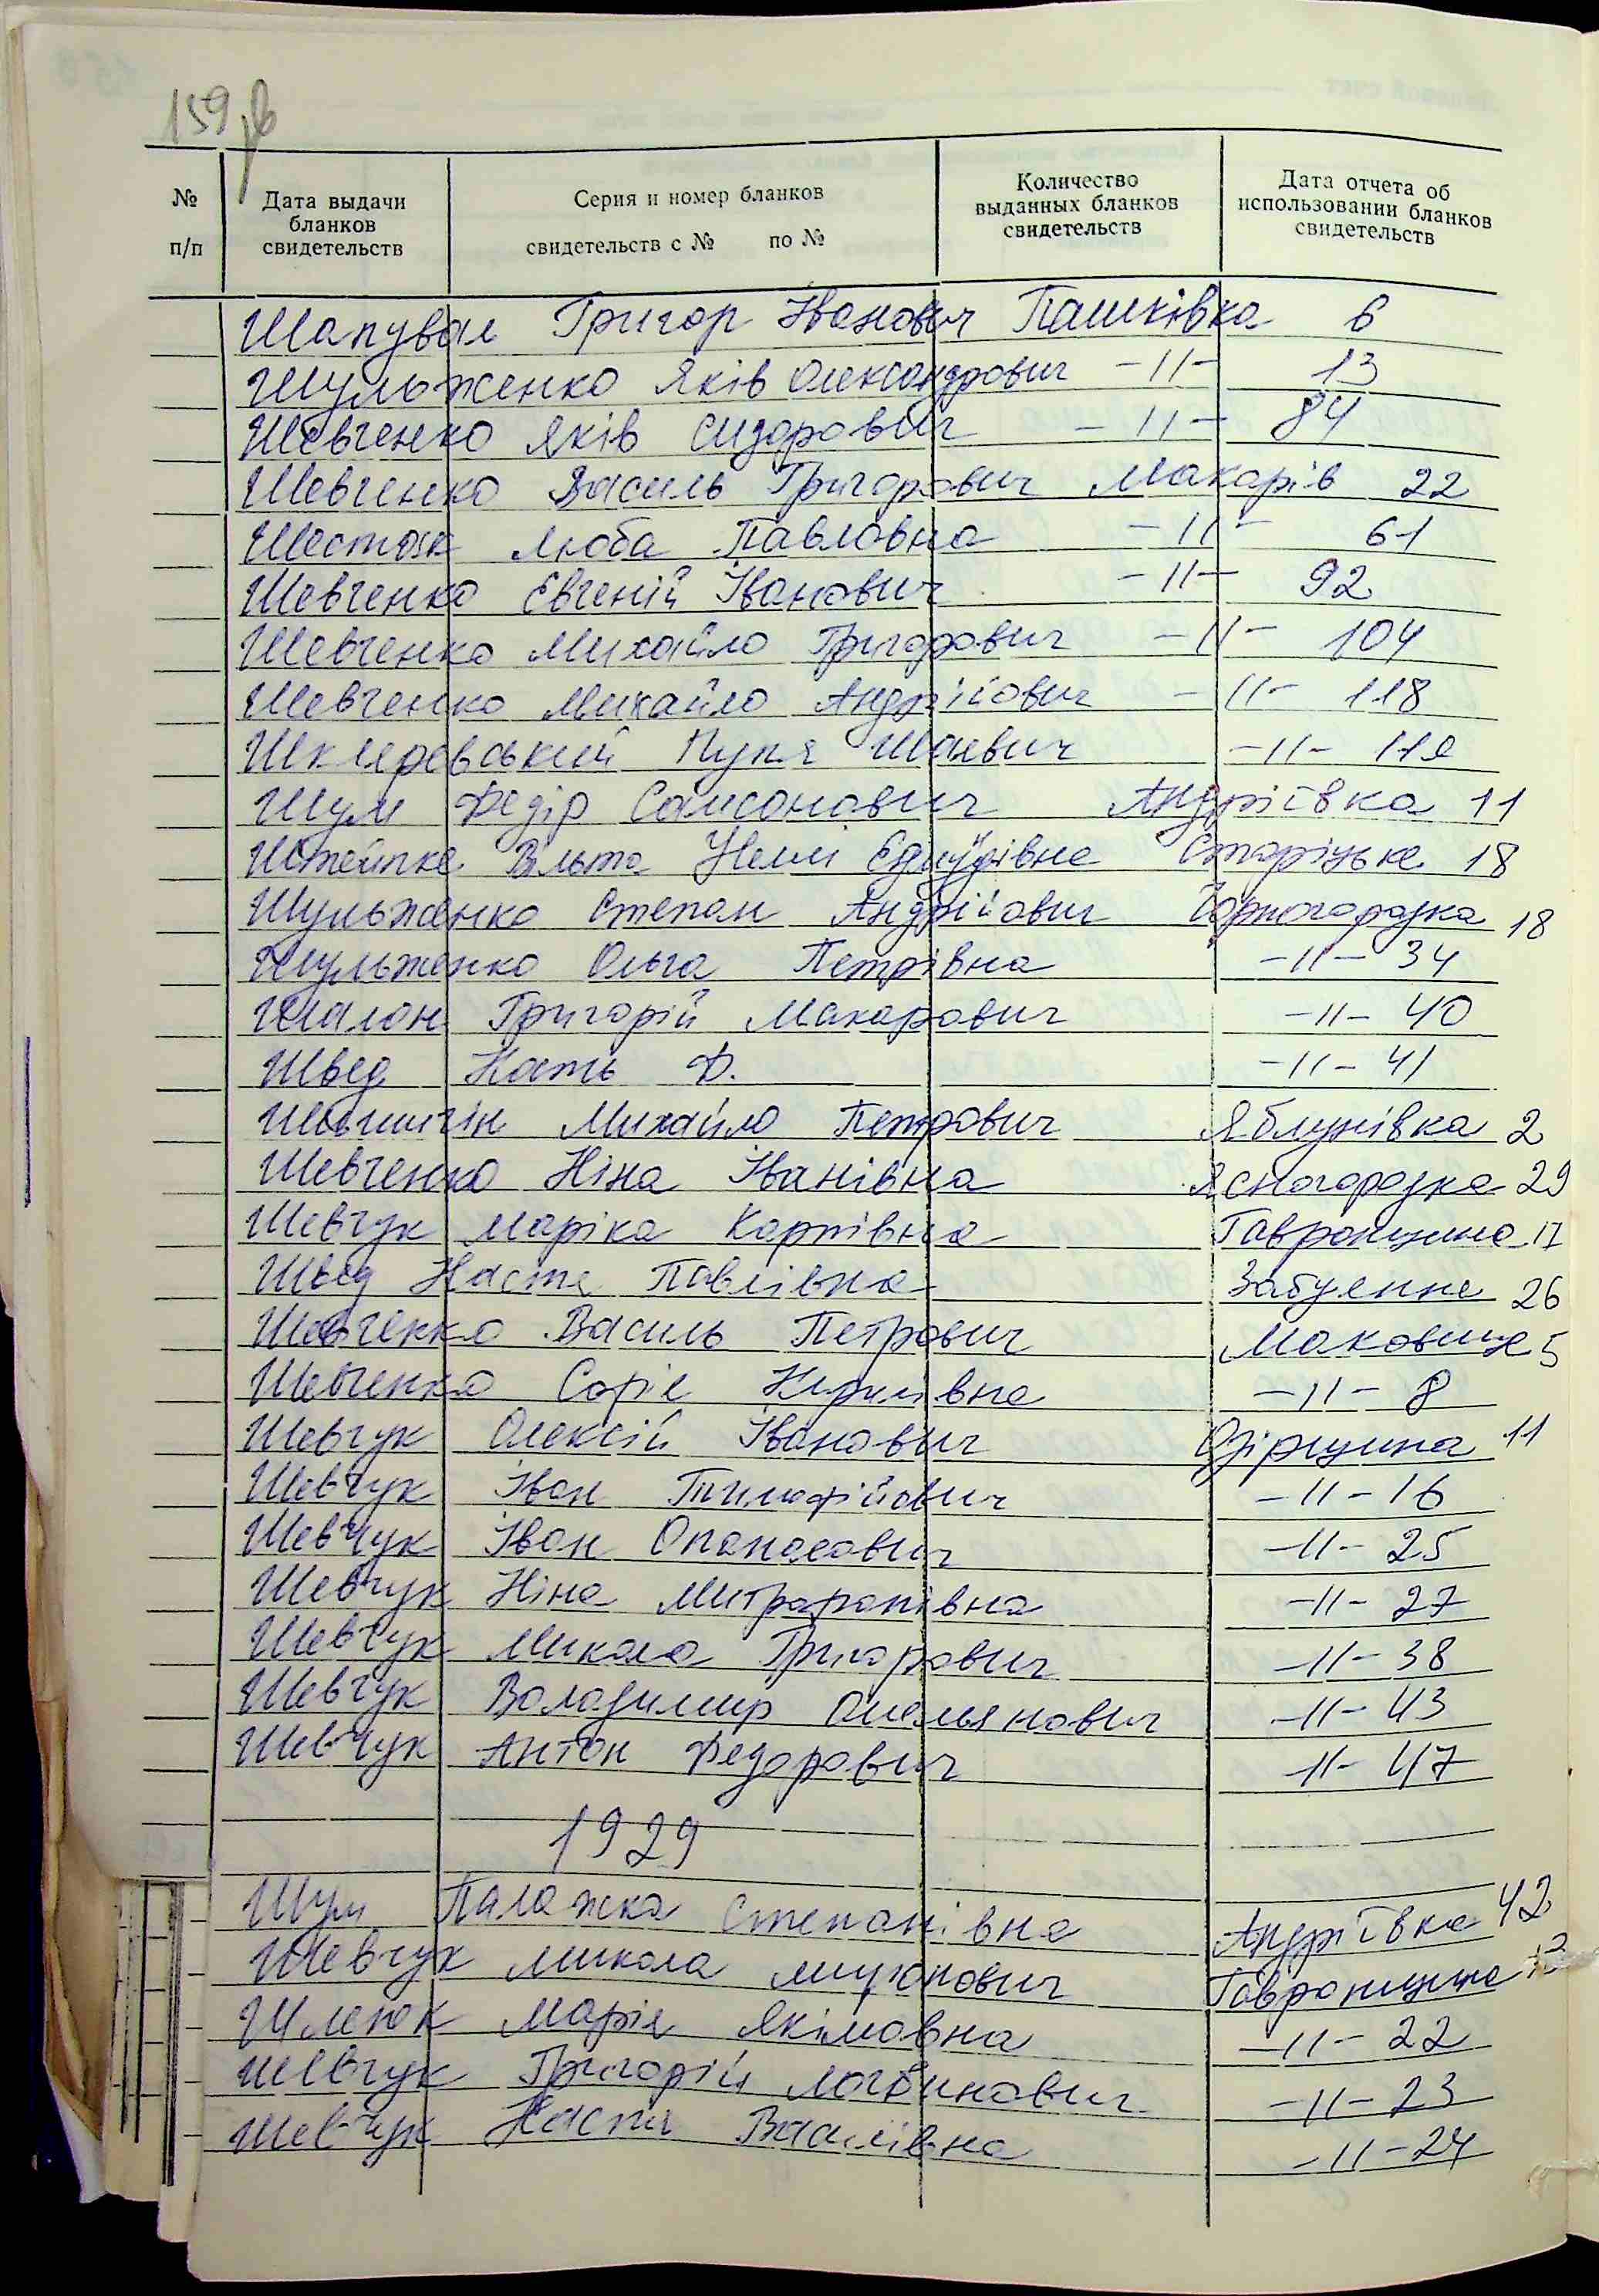 159 зв
№ п/п
Дата выдачи бланков свидетельств
Серия и номер бланков свидетельств с № по №
Количество выданных бланков свидетельств
Дата отчета об использовании бланков свидетельств
Шапувал Григор Іванович Пашківка 6
Шульженко Яків Олександрович -11- 13
Шевченко Яків Сидорович -11- 84
Шевченко Василь Григорович Макарів 22
Шестак Люба Павловна -11- 61
Шевченко Євгеній Іванович -11- 92
Шевченко Михайло Григорович -11- 104
Шевченко Михайло Андрійович -11- 118
Шкляревський -11- 119
Шум Федір Самсонович Андріївка 11
Штейпке Вльта Неллі 18
Шульженко Степан Андрійович Чорногородка 18
Шульженко Ольга Петрівна -11- 34
Шалон Григорій Макарович -11- 40
Швед Кать Ф. -11- 41
Михайло Петрович Яблунівка 2
Шевченко Ніна Іванівна Ясногородка 29
Шевчук Маріка Карпівна Гавронщина 17
Швед Настя Павлівна Забуяння 26
Шевченко Василь Петрович Маковище 5
Шевченко Софія Кирилівна -11- 8
Шевчук Олексій Іванович Озірщина 11
Шевчук Іван Тимофійович -11- 16
Шевчук Іван Опанасович -11- 25
Шевчук Ніна Митрофанівна -11- 27
Шевчук Микола Григорович -11- 38
Шевчук Володимир Омельянович -11- 43
Шевчук Антон Федорович -11- 47
1929
Шум Палажка Степанівна Андріївка 42
Шевчук Микола Гавронщина
Шленок Марія Якімовна -11- 22
Шевчук Григорій Логвинович -11- 23
Шевчук Настя Василівна -11- 24